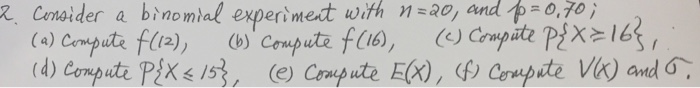 2. Consider a binomial experiment with n=20, and p=0.70;
(a) Compute f(12), (b) Compute f(16), (c) Compute P{X≥16},
(d) Compute P{X≤15}, (e) Compute E(X), (f) Compute V(X) and σ.